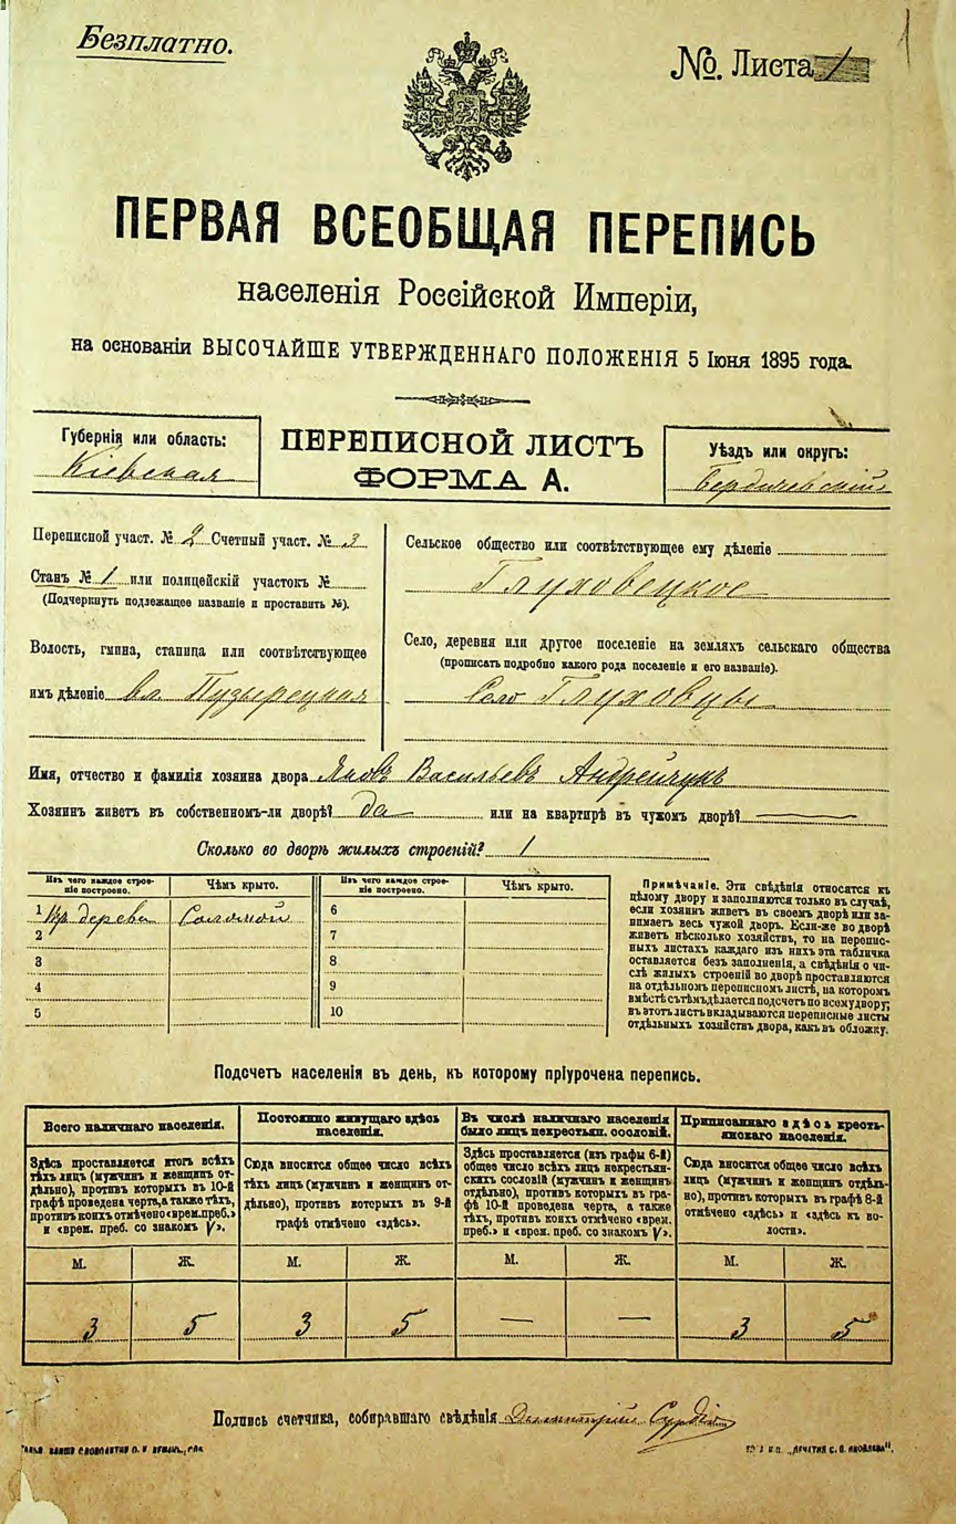 Безплатно.
№. Листа 1
1
ПЕРВАЯ ВСЕОБЩАЯ ПЕРЕПИСЬ
населенія Россійской Имперіи,
на основаніи ВЫСОЧАЙШЕ УТВЕРЖДЕННАГО ПОЛОЖЕНІЯ 5 Іюня 1895 года.
Губернія или область:
Кіевская
ПЕРЕПИСНОЙ ЛИСТЪ
ФОРМА А.
Уѣздъ или округъ:
Бердичевскій
Переписной участ. № 2 Счетный участ. № 3
Станъ № 1 или полицейскій участокъ №
(Подчеркнуть подлежащее названіе и проставить №).
Волость, гмина, станица или соотвѣтствующее
имъ дѣленіе вл. Пузырецкая
Сельское общество или соотвѣтствующее ему дѣленіе
Глуховецкое
Село, деревня или другое поселеніе на земляхъ сельскаго общества
(прописать подробно какого рода поселеніе и его названіе).
Село Глуховцы
Имя, отчество и фамилія хозяина двора Яковъ Васильевъ Андрейчукъ
Хозяинъ живетъ въ собственномъ-ли дворѣ? да или на квартирѣ въ чужомъ дворѣ? —
Сколько во дворѣ жилыхъ строеній? 1
Изъ чего каждое строе-
ніе построено.
Чѣмъ крыто.
Изъ чего каждое строе-
ніе построено.
Чѣмъ крыто.
1 дерева Соломой 6
2 7
3 8
4 9
5 10
Примѣчаніе. Эти свѣдѣнія относятся къ
цѣлому двору и заполняются только въ случаѣ,
если хозяинъ живетъ въ своемъ дворѣ или за-
нимаетъ весь чужой дворъ. Если-же во дворѣ
живетъ нѣсколько хозяйствъ, то на перепис-
ныхъ листахъ каждаго изъ нихъ эта табличка
оставляется безъ заполненія, а свѣдѣнія о чи-
слѣ жилыхъ строеній во дворѣ проставляются
на отдѣльномъ переписномъ листѣ, на которомъ
вмѣстѣ съ тѣмъ дѣлается подсчетъ по всему двору;
въ этотъ листъ вкладываются переписные листы
отдѣльныхъ хозяйствъ двора, какъ въ обложку.
Подсчетъ населенія въ день, къ которому пріурочена перепись.
Всего наличнаго населенія.
Здѣсь проставляется итогъ всѣхъ
тѣхъ лицъ (мужчинъ и женщинъ от-
дѣльно), противъ которыхъ въ 10-й
графѣ проведена черта, а также тѣхъ,
противъ коихъ отмѣчено «врем. преб.»
и «врем. преб. со знакомъ V».
Постоянно живущаго здѣсь
населенія.
Сюда вносится общее число всѣхъ
тѣхъ лицъ (мужчинъ и женщинъ от-
дѣльно), противъ которыхъ въ 9-й
графѣ отмѣчено «здѣсь».
Въ числѣ наличнаго населенія
было лицъ некрестьян. сословій.
Здѣсь проставляется (изъ графы 6-й)
общее число всѣхъ лицъ некрестьян-
скихъ сословій (мужчинъ и женщинъ
отдѣльно), противъ которыхъ въ гра-
фѣ 10-й проведена черта, а также
тѣхъ, противъ коихъ отмѣчено «врем.
преб.» и «врем. преб. со знакомъ V».
Приписаннаго здѣсь кресть-
янскаго населенія.
Сюда вносится общее число всѣхъ
лицъ (мужчинъ и женщинъ отдѣль-
но), противъ которыхъ въ графѣ 8-й
отмѣчено «здѣсь» и «здѣсь къ во-
лости».
М. Ж. М. Ж. М. Ж. М. Ж.
3 5 3 5 — — 3 5
Подпись счетчика, собиравшаго свѣдѣнія